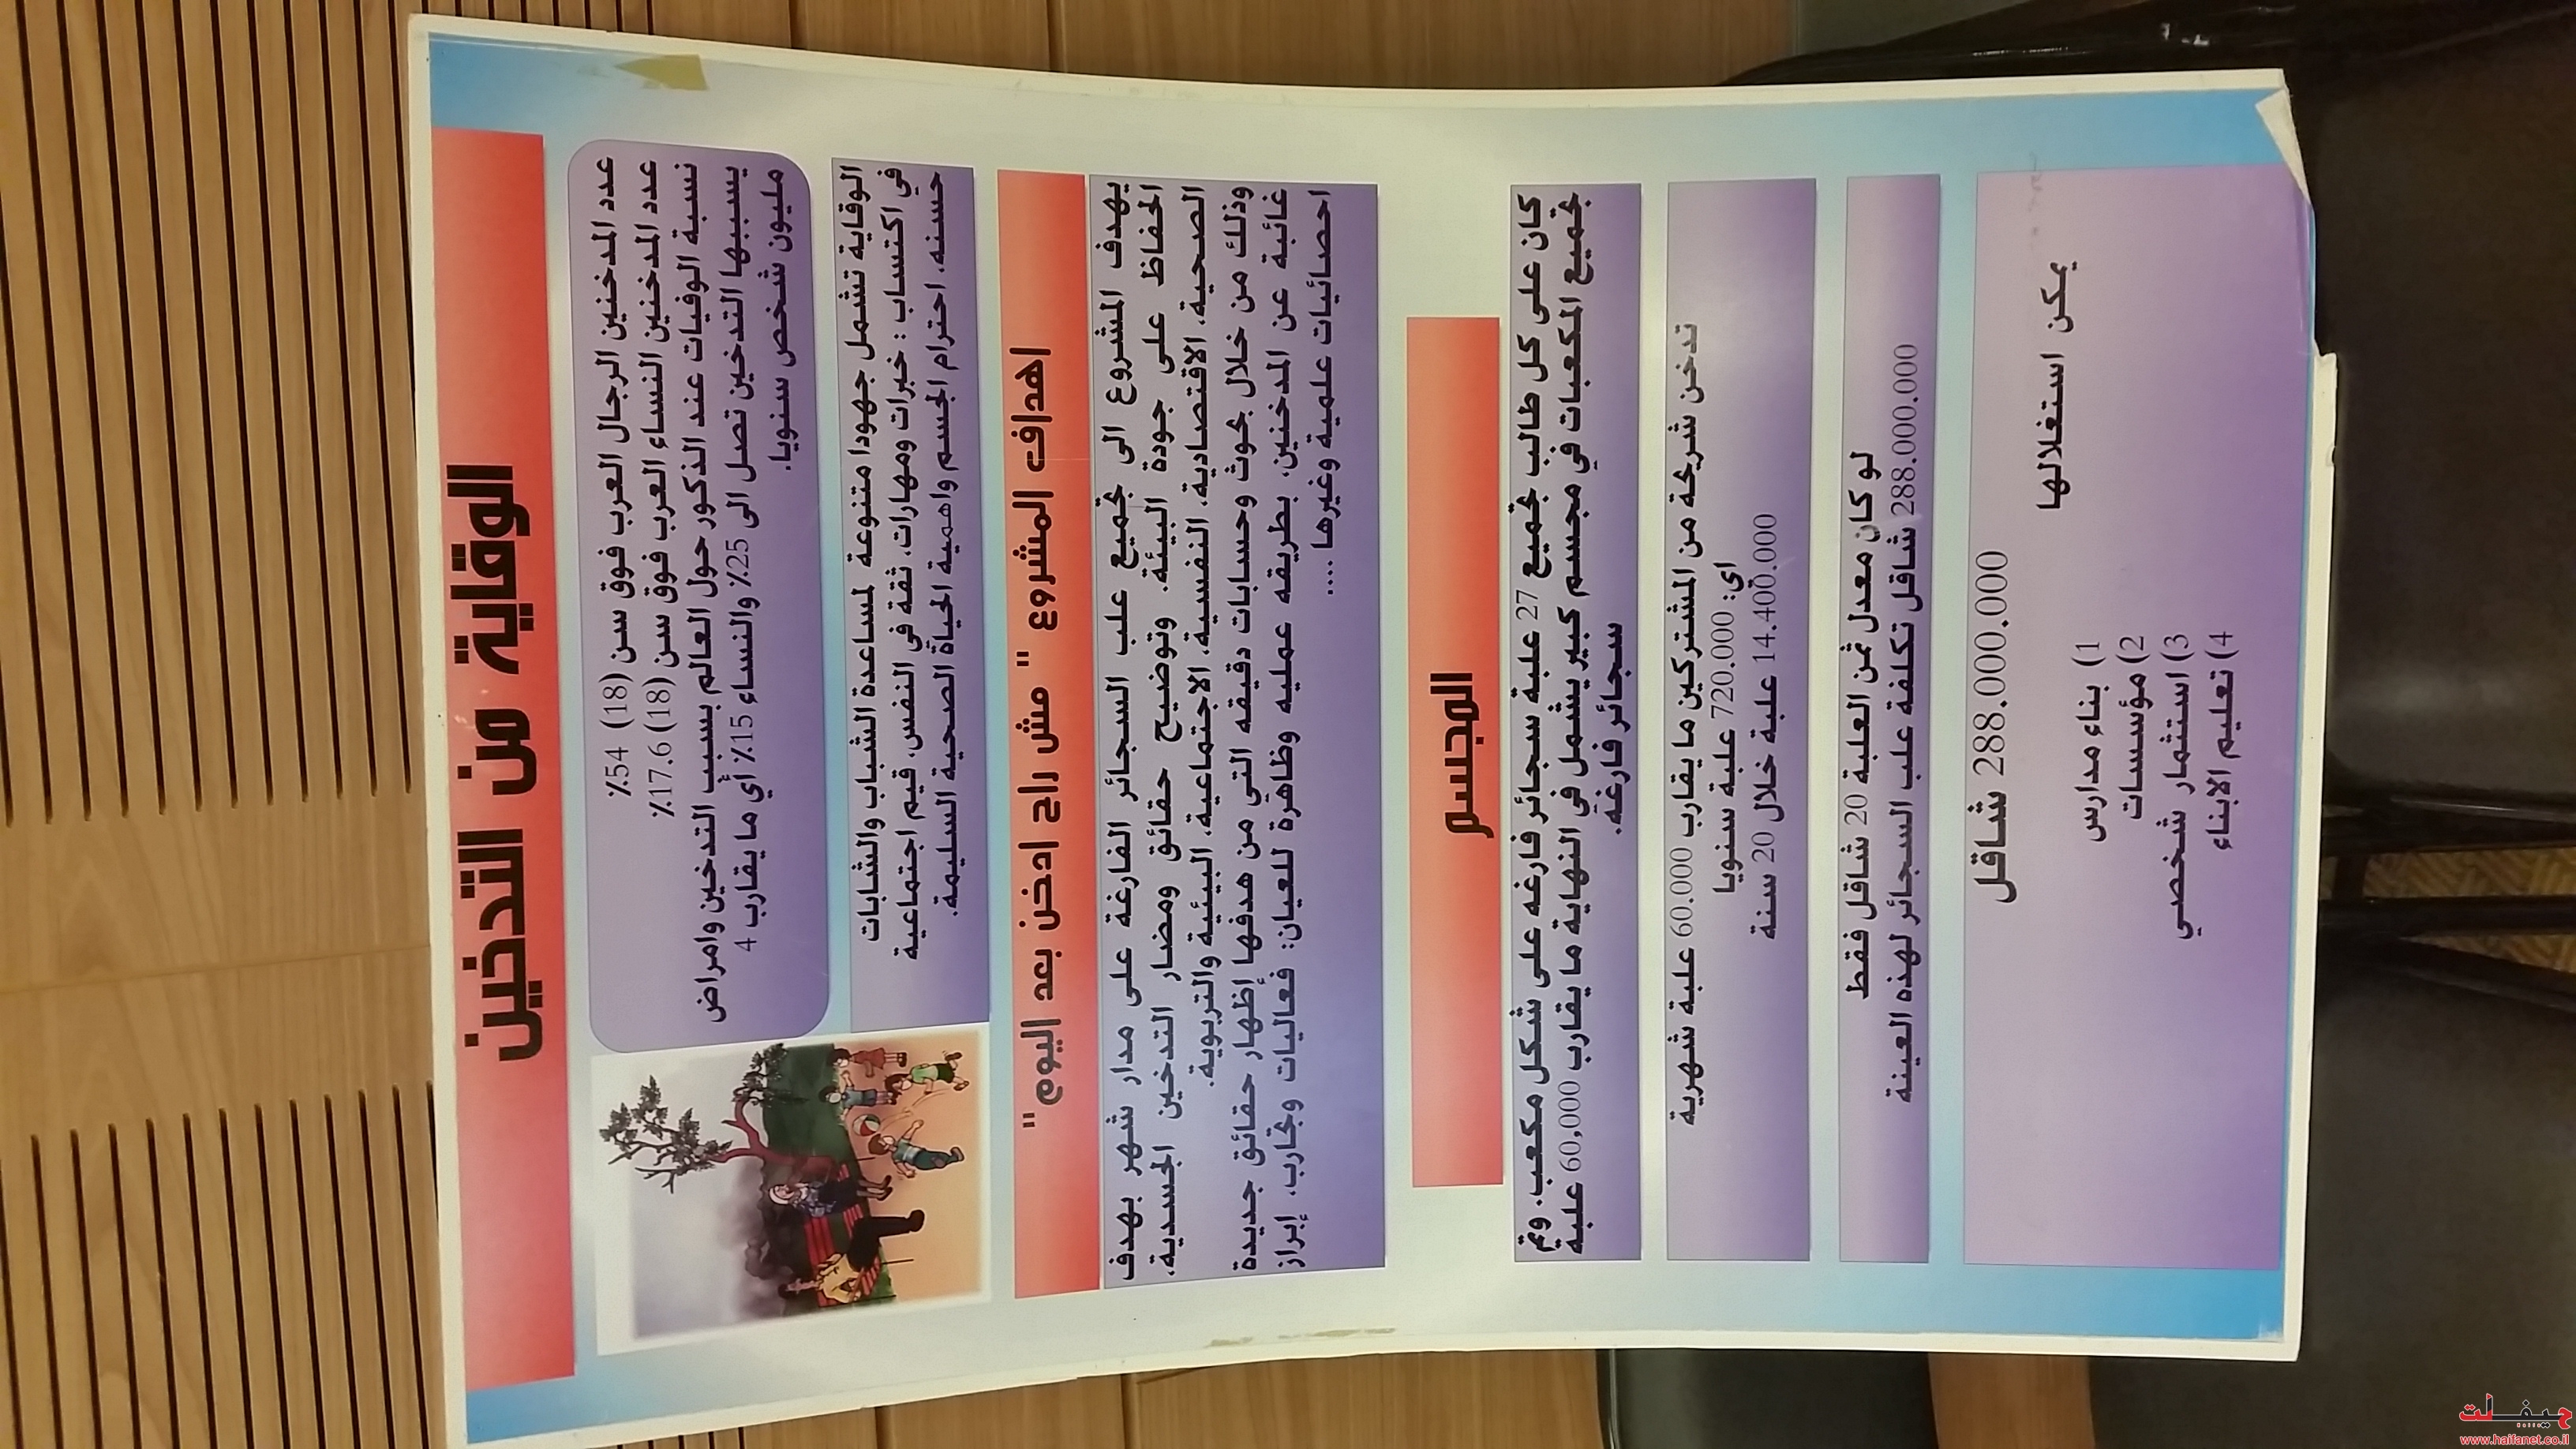 الوقاية من التدخين
عدد المدخنين الرجال العرب فوق سن (18) 54٪
عدد المدخنين النساء العرب فوق سن (18) 17.6٪
نسبة الوفيات عند الذكور حول العالم بسبب التدخين وامراض
يسببها التدخين تصل الى 25٪ والنساء 15٪ أي ما يقارب 4
مليون شخص سنويا.
الوقاية تشمل جهودا متنوعة لمساعدة الشباب والشابات
في اكتساب : خبرات ومهارات، ثقة في النفس، قيم اجتماعية
حسنه، احترام الجسم واهمية الحياة الصحية السليمة.
اهداف المشروع " مش راح ادخن بعد اليوم"
يهدف المشروع الى تجميع علب السجائر الفارغة على مدار شهر بهدف
الحفاظ على جودة البيئة. وتوضيح حقائق ومضار التدخين الجسدية،
الصحية، الاقتصادية، النفسية، الاجتماعية، البيئية والتربوية.
وذلك من خلال بحوث وحسابات دقيقه التي من هدفها إظهار حقائق جديدة
غائبة عن المدخنين، بطريقه عمليه وظاهرة للعيان: فعاليات وتجارب، إبراز
احصائيات علمية وغيرها ....
المجسم
كان على كل طالب تجميع 27 علبة سجائر فارغه على شكل مكعب. وتم
تجميع المكعبات في مجسم كبير يشمل في النهاية ما يقارب 60,000 علبة
سجائر فارغة.
تدخن شريحة من المشتركين ما يقارب 60.000 علبة شهرية
اي: 720.000 علبة سنويا
14.400.000 علبة خلال 20 سنة
لو كان معدل ثمن العلبة 20 شاقل فقط
288.000.000 شاقل تكلفة علب السجائر لهذه العينة
288.000.000 شاقل
يمكن استغلالها
1) بناء مدارس
2) مؤسسات
3) استثمار شخصي
4) تعليم الابناء
حيفا نت
www.haifanet.co.il